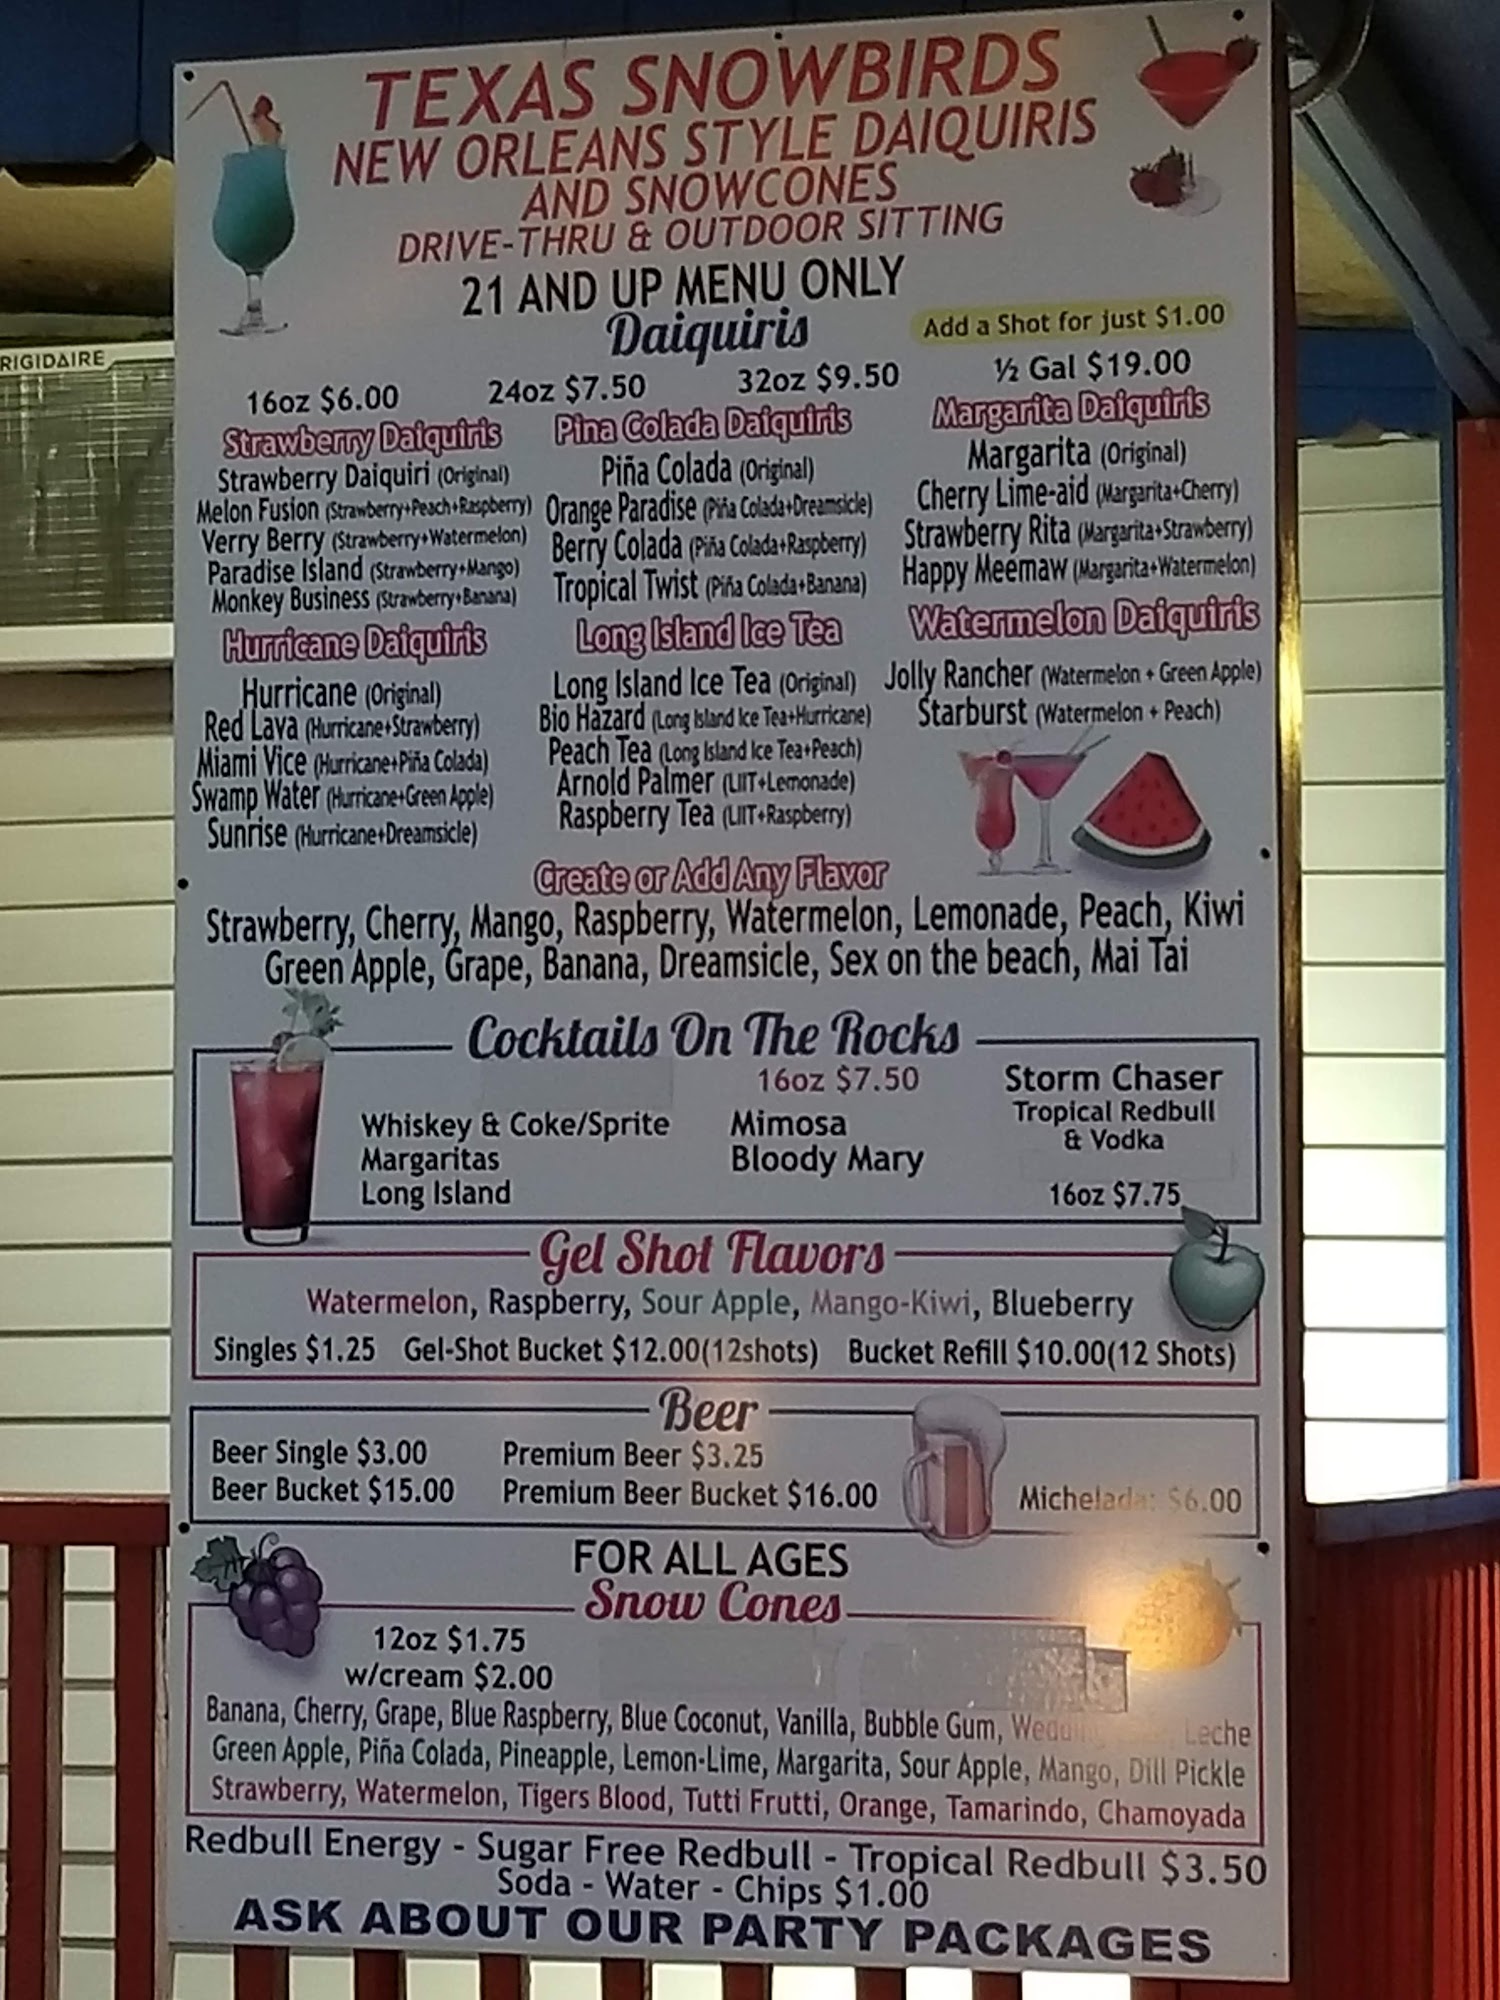 RIGIDAIRE
TEXAS SNOWBIRDS
NEW ORLEANS STYLE DAIQUIRIS
AND SNOWCONES
DRIVE-THRU & OUTDOOR SITTING
21 AND UP MENU ONLY
Daiquiris
Add a Shot for just $1.00
16oz $6.00 24oz $7.50 32oz $9.50 ½ Gal $19.00
Strawberry Daiquiris
Strawberry Daiquiri (Original)
Melon Fusion (Strawberry+Peach+Raspberry)
Verry Berry (Strawberry+Watermelon)
Paradise Island (Strawberry+Mango)
Monkey Business (Strawberry+Banana)
Pina Colada Daiquiris
Piña Colada (Original)
Orange Paradise (Piña Colada+Dreamsicle)
Berry Colada (Piña Colada+Raspberry)
Tropical Twist (Piña Colada+Banana)
Margarita Daiquiris
Margarita (Original)
Cherry Lime-aid (Margarita+Cherry)
Strawberry Rita (Margarita+Strawberry)
Happy Meemaw (Margarita+Watermelon)
Hurricane Daiquiris
Hurricane (Original)
Red Lava (Hurricane+Strawberry)
Miami Vice (Hurricane+Piña Colada)
Swamp Water (Hurricane+Green Apple)
Sunrise (Hurricane+Dreamsicle)
Long Island Ice Tea
Long Island Ice Tea (Original)
Bio Hazard (Long Island Ice Tea+Hurricane)
Peach Tea (Long Island Ice Tea+Peach)
Arnold Palmer (LIIT+Lemonade)
Raspberry Tea (LIIT+Raspberry)
Watermelon Daiquiris
Jolly Rancher (Watermelon + Green Apple)
Starburst (Watermelon + Peach)
Create or Add Any Flavor
Strawberry, Cherry, Mango, Raspberry, Watermelon, Lemonade, Peach, Kiwi
Green Apple, Grape, Banana, Dreamsicle, Sex on the beach, Mai Tai
Cocktails On The Rocks
16oz $7.50
Whiskey & Coke/Sprite
Margaritas
Long Island
Mimosa
Bloody Mary
Storm Chaser
Tropical Redbull
& Vodka
16oz $7.75
Gel Shot Flavors
Watermelon, Raspberry, Sour Apple, Mango-Kiwi, Blueberry
Singles $1.25 Gel-Shot Bucket $12.00(12shots) Bucket Refill $10.00(12 Shots)
Beer
Beer Single $3.00 Premium Beer $3.25
Beer Bucket $15.00 Premium Beer Bucket $16.00 Michelada: $6.00
FOR ALL AGES
Snow Cones
12oz $1.75
w/cream $2.00
Banana, Cherry, Grape, Blue Raspberry, Blue Coconut, Vanilla, Bubble Gum, Leche
Green Apple, Piña Colada, Pineapple, Lemon-Lime, Margarita, Sour Apple, Mango, Dill Pickle
Strawberry, Watermelon, Tigers Blood, Tutti Frutti, Orange, Tamarindo, Chamoyada
Redbull Energy - Sugar Free Redbull - Tropical Redbull $3.50
Soda - Water - Chips $1.00
ASK ABOUT OUR PARTY PACKAGES